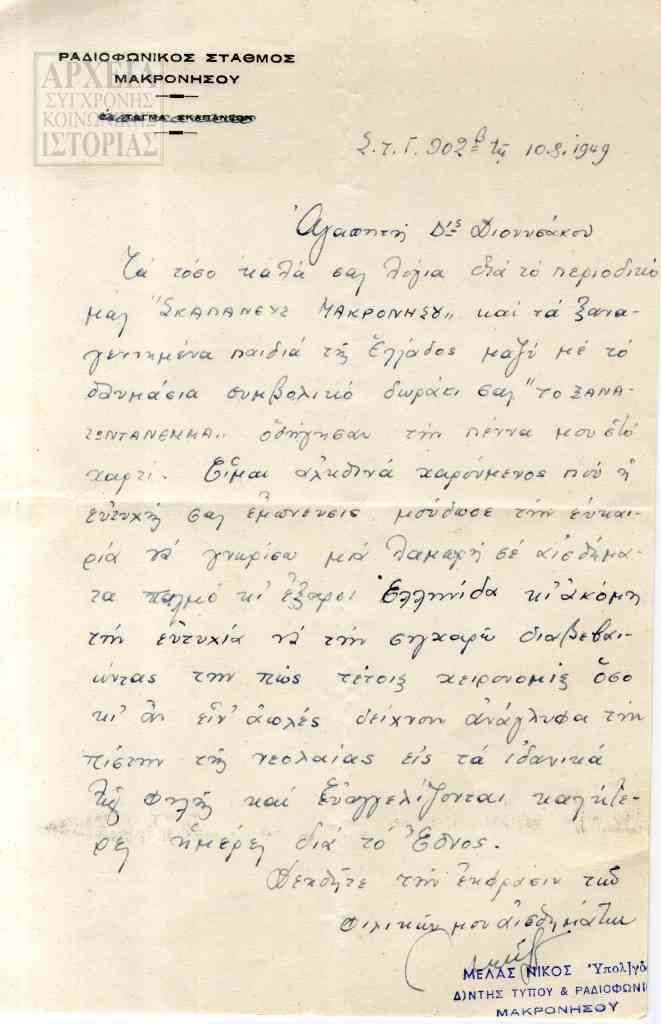 ΡΑΔΙΟΦΩΝΙΚΟΣ ΣΤΑΘΜΟΣ
ΜΑΚΡΟΝΗΣΟΥ
ΑΡΧΕΙΑ
ΣΥΓΧΡΟΝΗΣ
ΚΟΙΝΩΝΙΚΗΣ
ΙΣΤΟΡΙΑΣ
ΤΑΓΜΑ ΣΚΑΠΑΝΕΩΝ
Σ.Τ.Γ. 902β τῇ 10.8.1949
Ἀγαπητή Δίς Διονυσάκου
Τά τόσο καλά σας λόγια διά τό περιοδικό
μας "ΣΚΑΠΑΝΕΥΣ ΜΑΚΡΟΝΗΣΟΥ" καί τά ξανα-
γεννημένα παιδιά τῆς Ἑλλάδος μαζύ μέ τό
θαυμάσια συμβολικό δωράκι σας "ΤΟ ΞΑΝΑ-
ΖΩΝΤΑΝΕΜΜΑ" ὁδήγησαν τήν πέννα μου στό
χαρτί. Εἶμαι ἀληθινά χαρούμενος πού ἡ
εὐτυχής σας ἔμπνευσις μοὔδωσε τήν εὐκαι-
ρία νά γνωρίσω μιά σέ αἰσθήμα-
τα παλμό κι' ἔξαρσι Ἑλληνίδα κι' ἀκόμη
τήν εὐτυχία νά τήν συγχαρῶ διαβεβαι-
ώντας την πώς τέτοιες χειρονομίες ὅσο
κι' ἄν εἶν' ἁπλές δείχνουν ἀνάγλυφα τήν
πίστιν τῆς νεολαίας εἰς τά ἰδανικά
τῆς Φυλῆς καί εὐαγγελίζονται καλήτε-
ρες ἡμέρες διά τό Ἔθνος.
Δεχθῆτε τήν ἔκφρασιν τῶν
φιλικῶν μου αἰσθημάτων
ΜΕΛΑΣ ΝΙΚΟΣ Ὑπολ)γὸ
Δ)ΝΤΗΣ ΤΥΠΟΥ & ΡΑΔΙΟΦΩΝΙ
ΜΑΚΡΟΝΗΣΟΥ